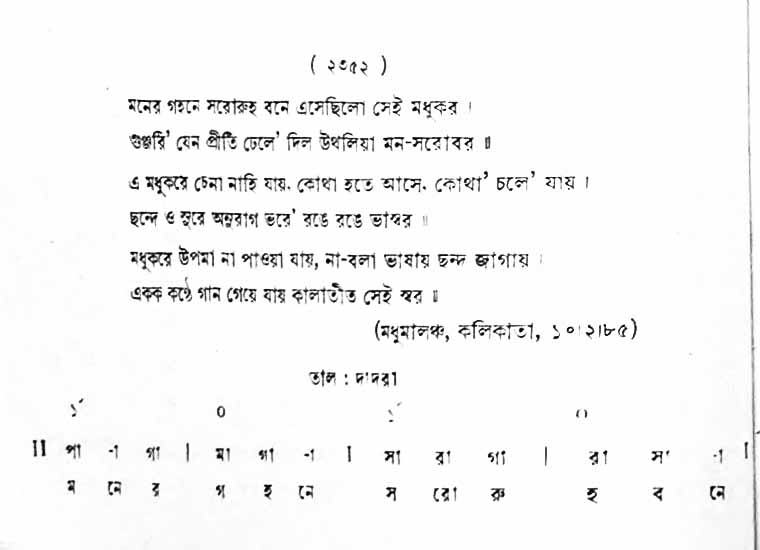 ( ২৩৫২ )
মনের গহনে সরোরুহ বনে এসেছিলো সেই মধুকর ।
গুঞ্জরি' যেন প্রীতি ঢেলে' দিল উথলিয়া মন-সরোবর ॥
এ মধুকরে চেনা নাহি যায়, কোথা হতে আসে, কোথা' চলে' যায় ।
ছন্দে ও সুরে অনুরাগ ভরে' রঙে রঙে ভাস্বর ॥
মধুকরে উপমা না পাওয়া যায়, না-বলা ভাষায় ছন্দ জাগায় ।
একক কণ্ঠে গান গেয়ে যায় কালাতীত সেই স্বর ॥
(মধুমালঞ্চ, কলিকাতা, ১০।২।৮৫)
তাল : দাদরা
১´ ০ ১´ ০
II পা -া গা | মা গা -া | সা রা গা | রা সা -া |
ম নে র গ হ নে স রো রু হ ব নে